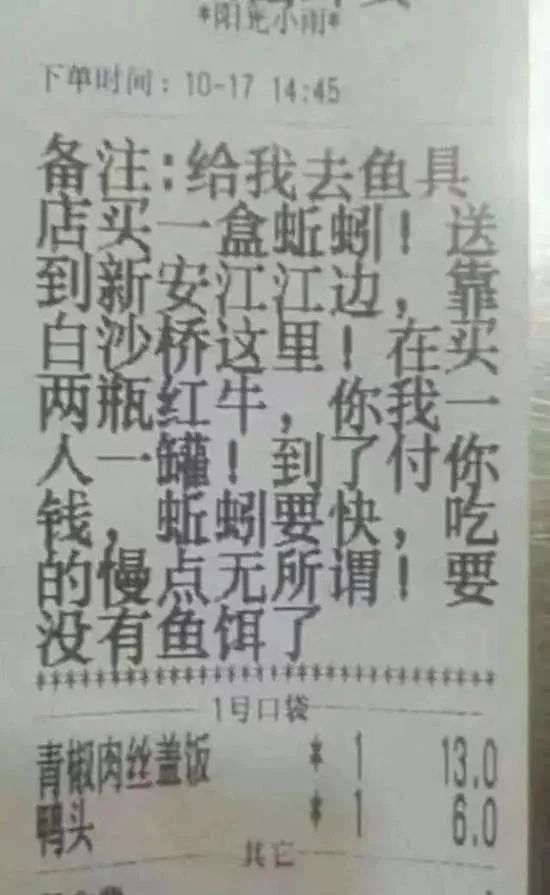 *阳光小雨*
下单时间：10-17 14:45
备注:给我去鱼具
店买一盒蚯蚓！送
到新安江江边，靠
白沙桥这里！在买
两瓶红牛，你我一
人一罐！到了付你
钱，蚯蚓要快，吃
的慢点无所谓！要
没有鱼饵了
********************************
1号口袋
青椒肉丝盖饭 * 1 13.0
鸭头 * 1 6.0
其它